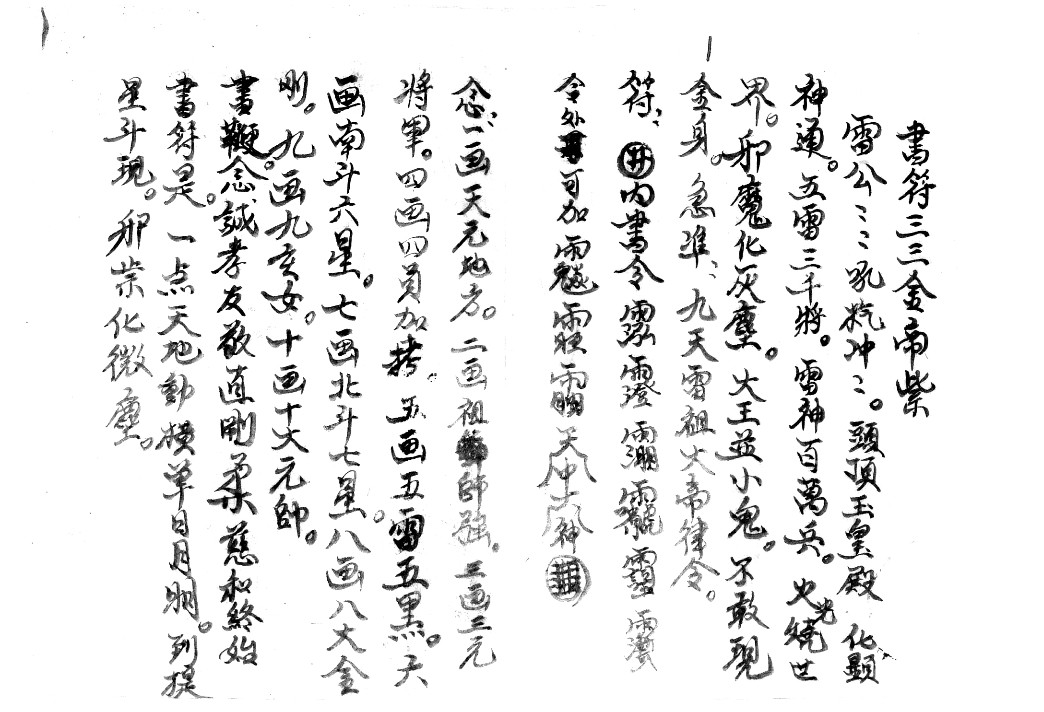 書符三三金帝紫
雷公〻〻吼粍冲〻。頭頂玉皇殿 化顯
神通。五雷三千將。雷神百萬兵。火光燒世
界。邪魔化灰塵。大王並小鬼。不敢現
金身。急准〻九天雷祖大帝律令。
符〻 井内書令
令 可加 天冲大神
念〻一画天元地方。二画祖師强。三画三元
將軍。四画四員加持。五画五雷五黑。六
画南斗六星。七画北斗七星。八画八大金
剛。九画九玄女。十画十大元帥。
書鞭。念誠孝友敬直剛柔慈和終始。
書符是。一点天地動 橫单日月明。列提
星斗現。邪崇化微塵。